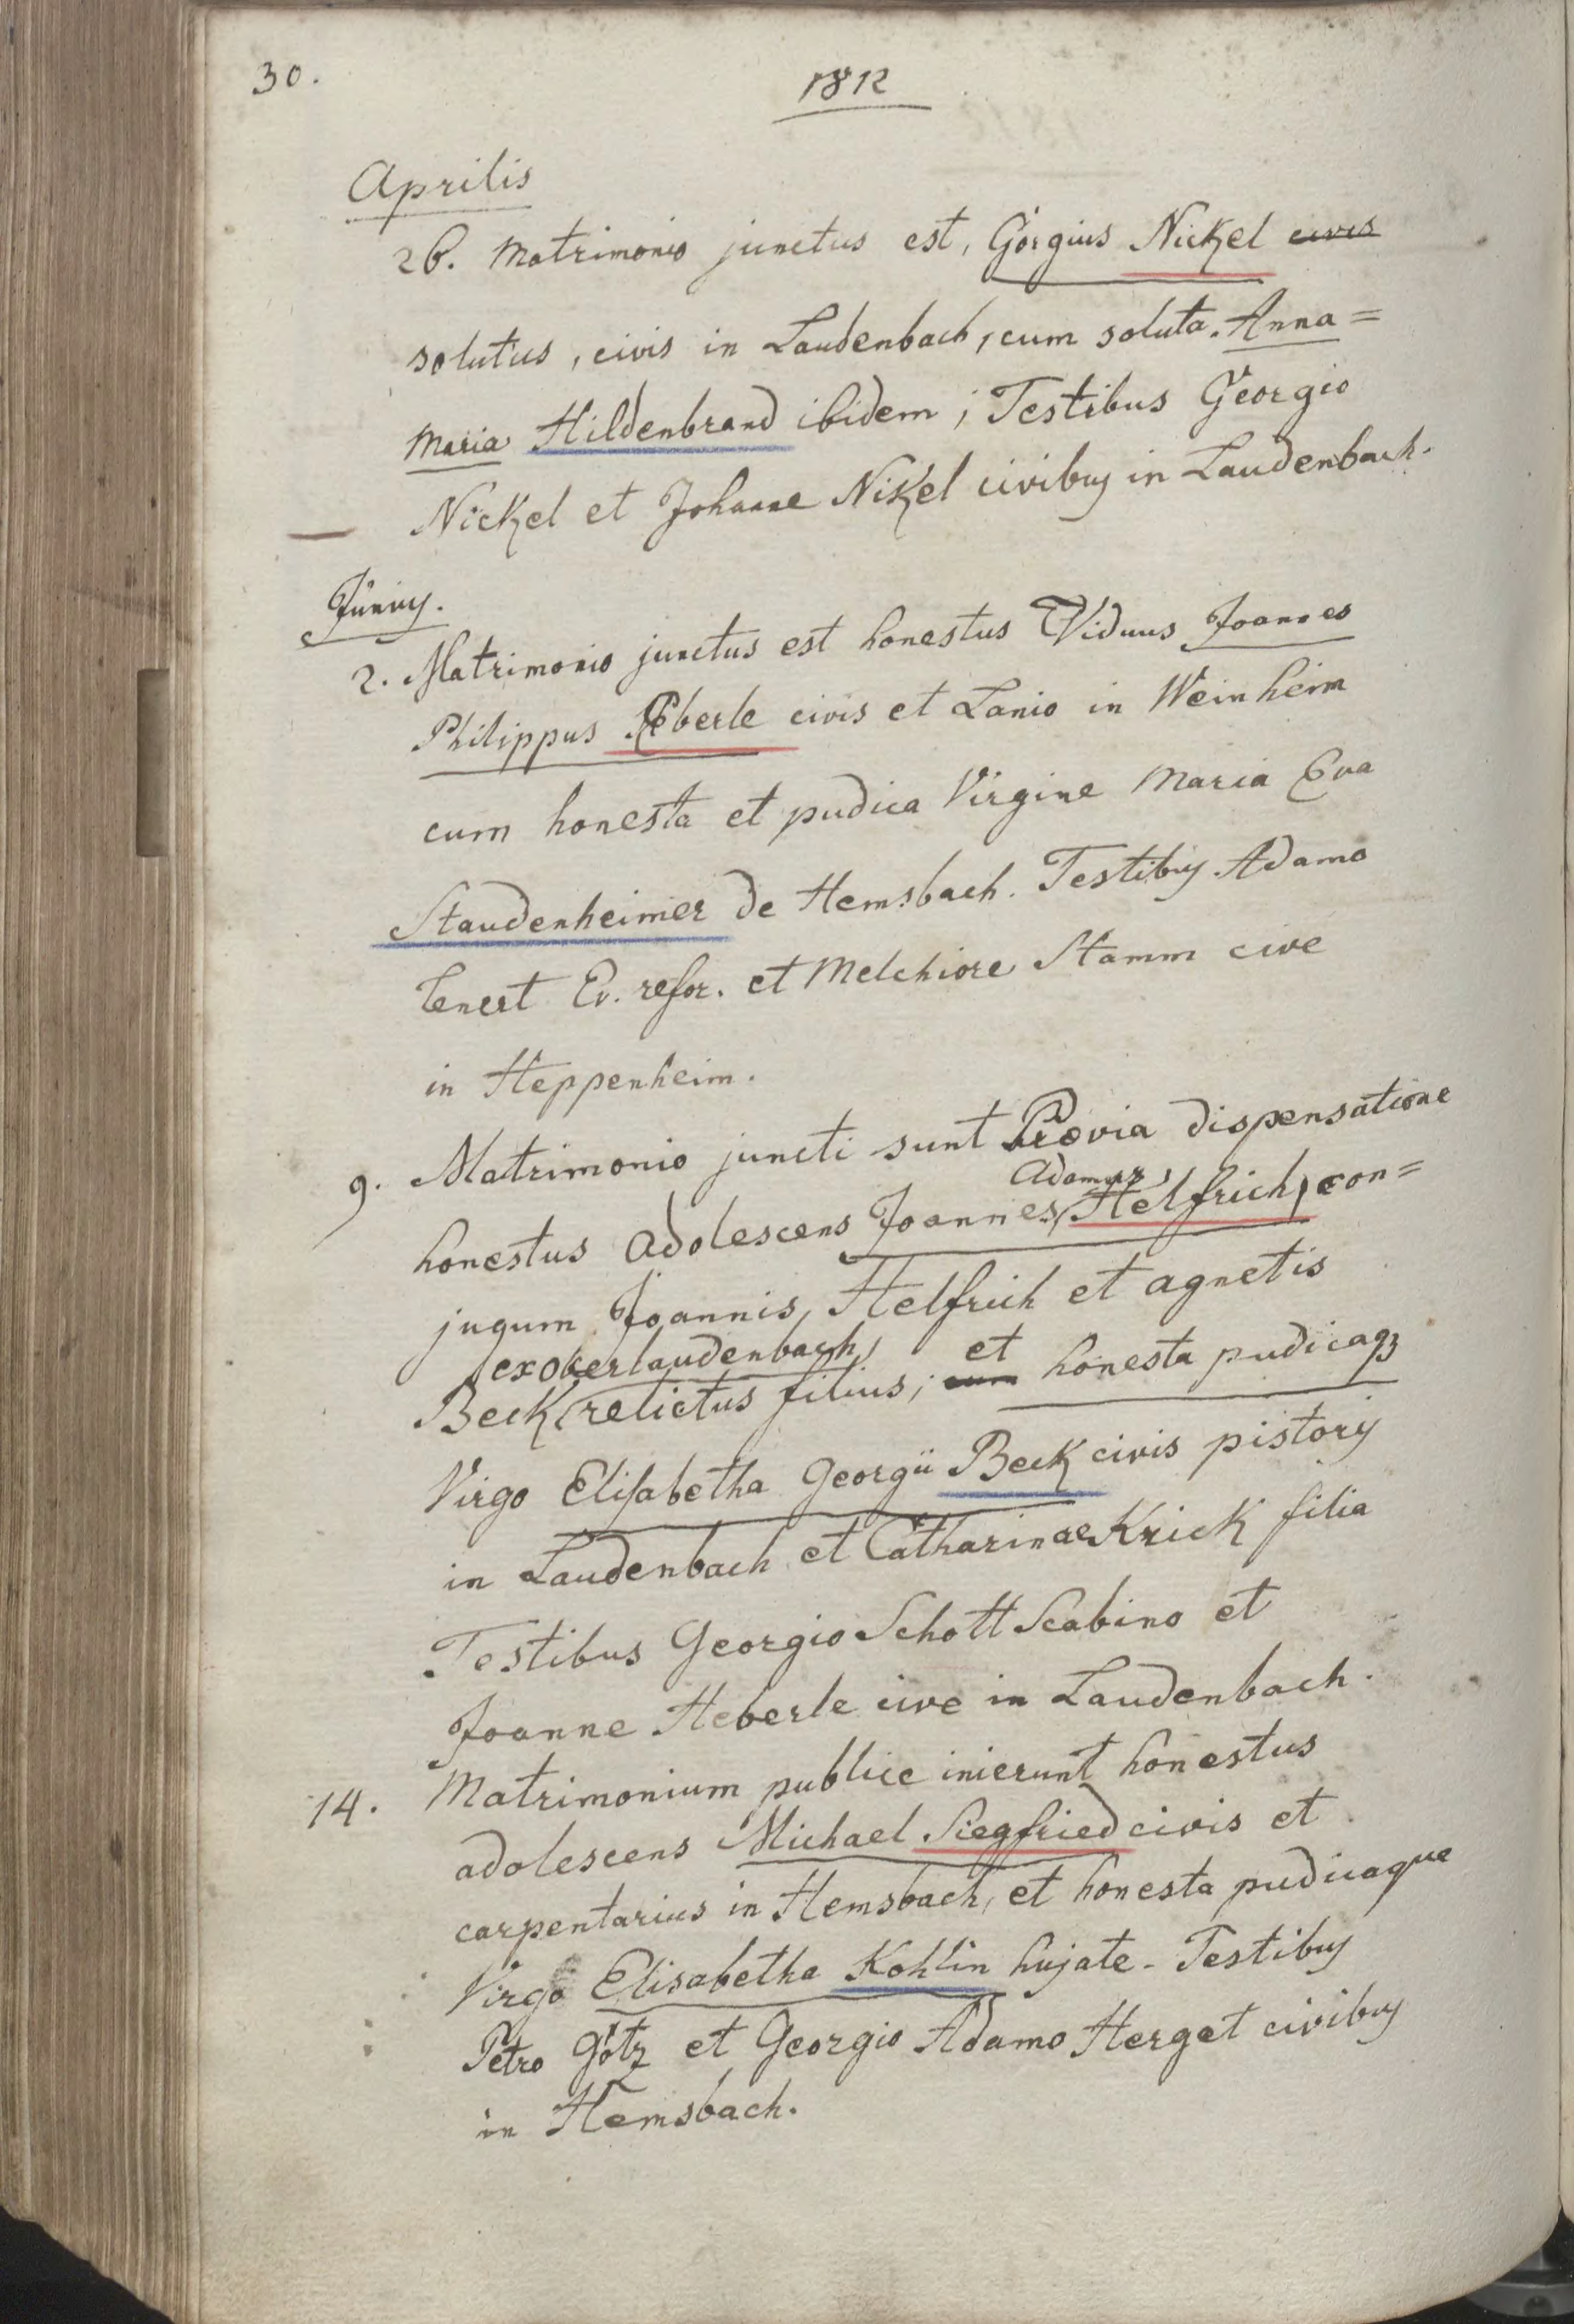 30.
1812
Aprilis
26. Matrimonio junctus est, Görgius Nickel civis
solutus, civis in Laudenbach, cum soluta Anna=
Maria Hildenbrand ibidem; Testibus Georgio
Nickel et Johanne Nikel civibus in Laudenbach.
Junius.
2. Matrimonio junctus est honestus Viduus Joannes
Philippus Eberle civis et Lanio in Weinheim
cum honesta et pudica Virgine Maria Eva
Staudenheimer de Hemsbach. Testibus Adamo
Lenert Ev. refor. et Melchiore Stamm cive
in Heppenheim.
9. Matrimonio juncti sunt Prævia dispensatione
Adamus,
honestus adolescens Joannes Helfrich, con=
jugum Joannis, Helfrich et agnetis
ex oberlaudenbach, et
Beck relictus filius; cum honesta pudicaq3
Virgo Elisabetha Georgii Beck civis pistoris
in Laudenbach et Catharinae Krick filia
Testibus Georgio Schott Scabino et
Joanne Heberle cive in Laudenbach.
14. Matrimonium publice inierunt honestus
adolescens Michael Siegfried civis et
carpentarius in Hemsbach, et honesta pudicaque
Virgo Elisabetha Kohlin hujate. Testibus
Petro Götz et Georgio Adamo Herget civibus
in Hemsbach.